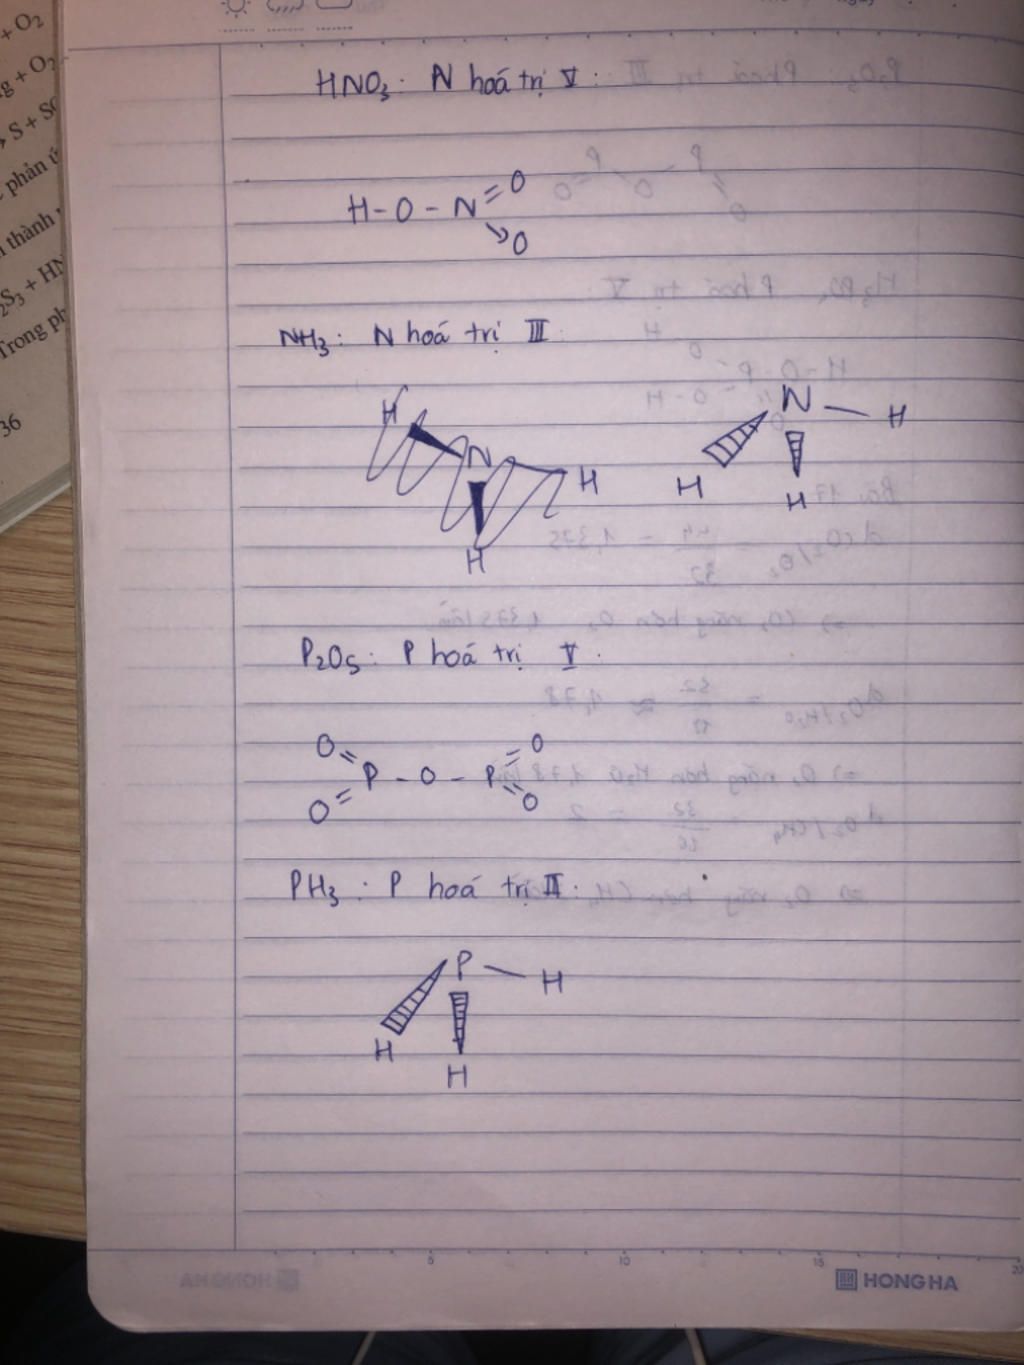 + O2
g + O2
→ S + SO
phản ứ
thành
2S3 + HN
Trong ph
36
HNO3: N hoá trị V:
H-O-N=O
O
NH3: N hoá trị III:
H
N
H
H
N
H
H
H
P2O5: P hoá trị V.
O O
P-O-P
O O
PH3: P hoá trị III:
P
H
H
H
5 10 15 20
HONG HA